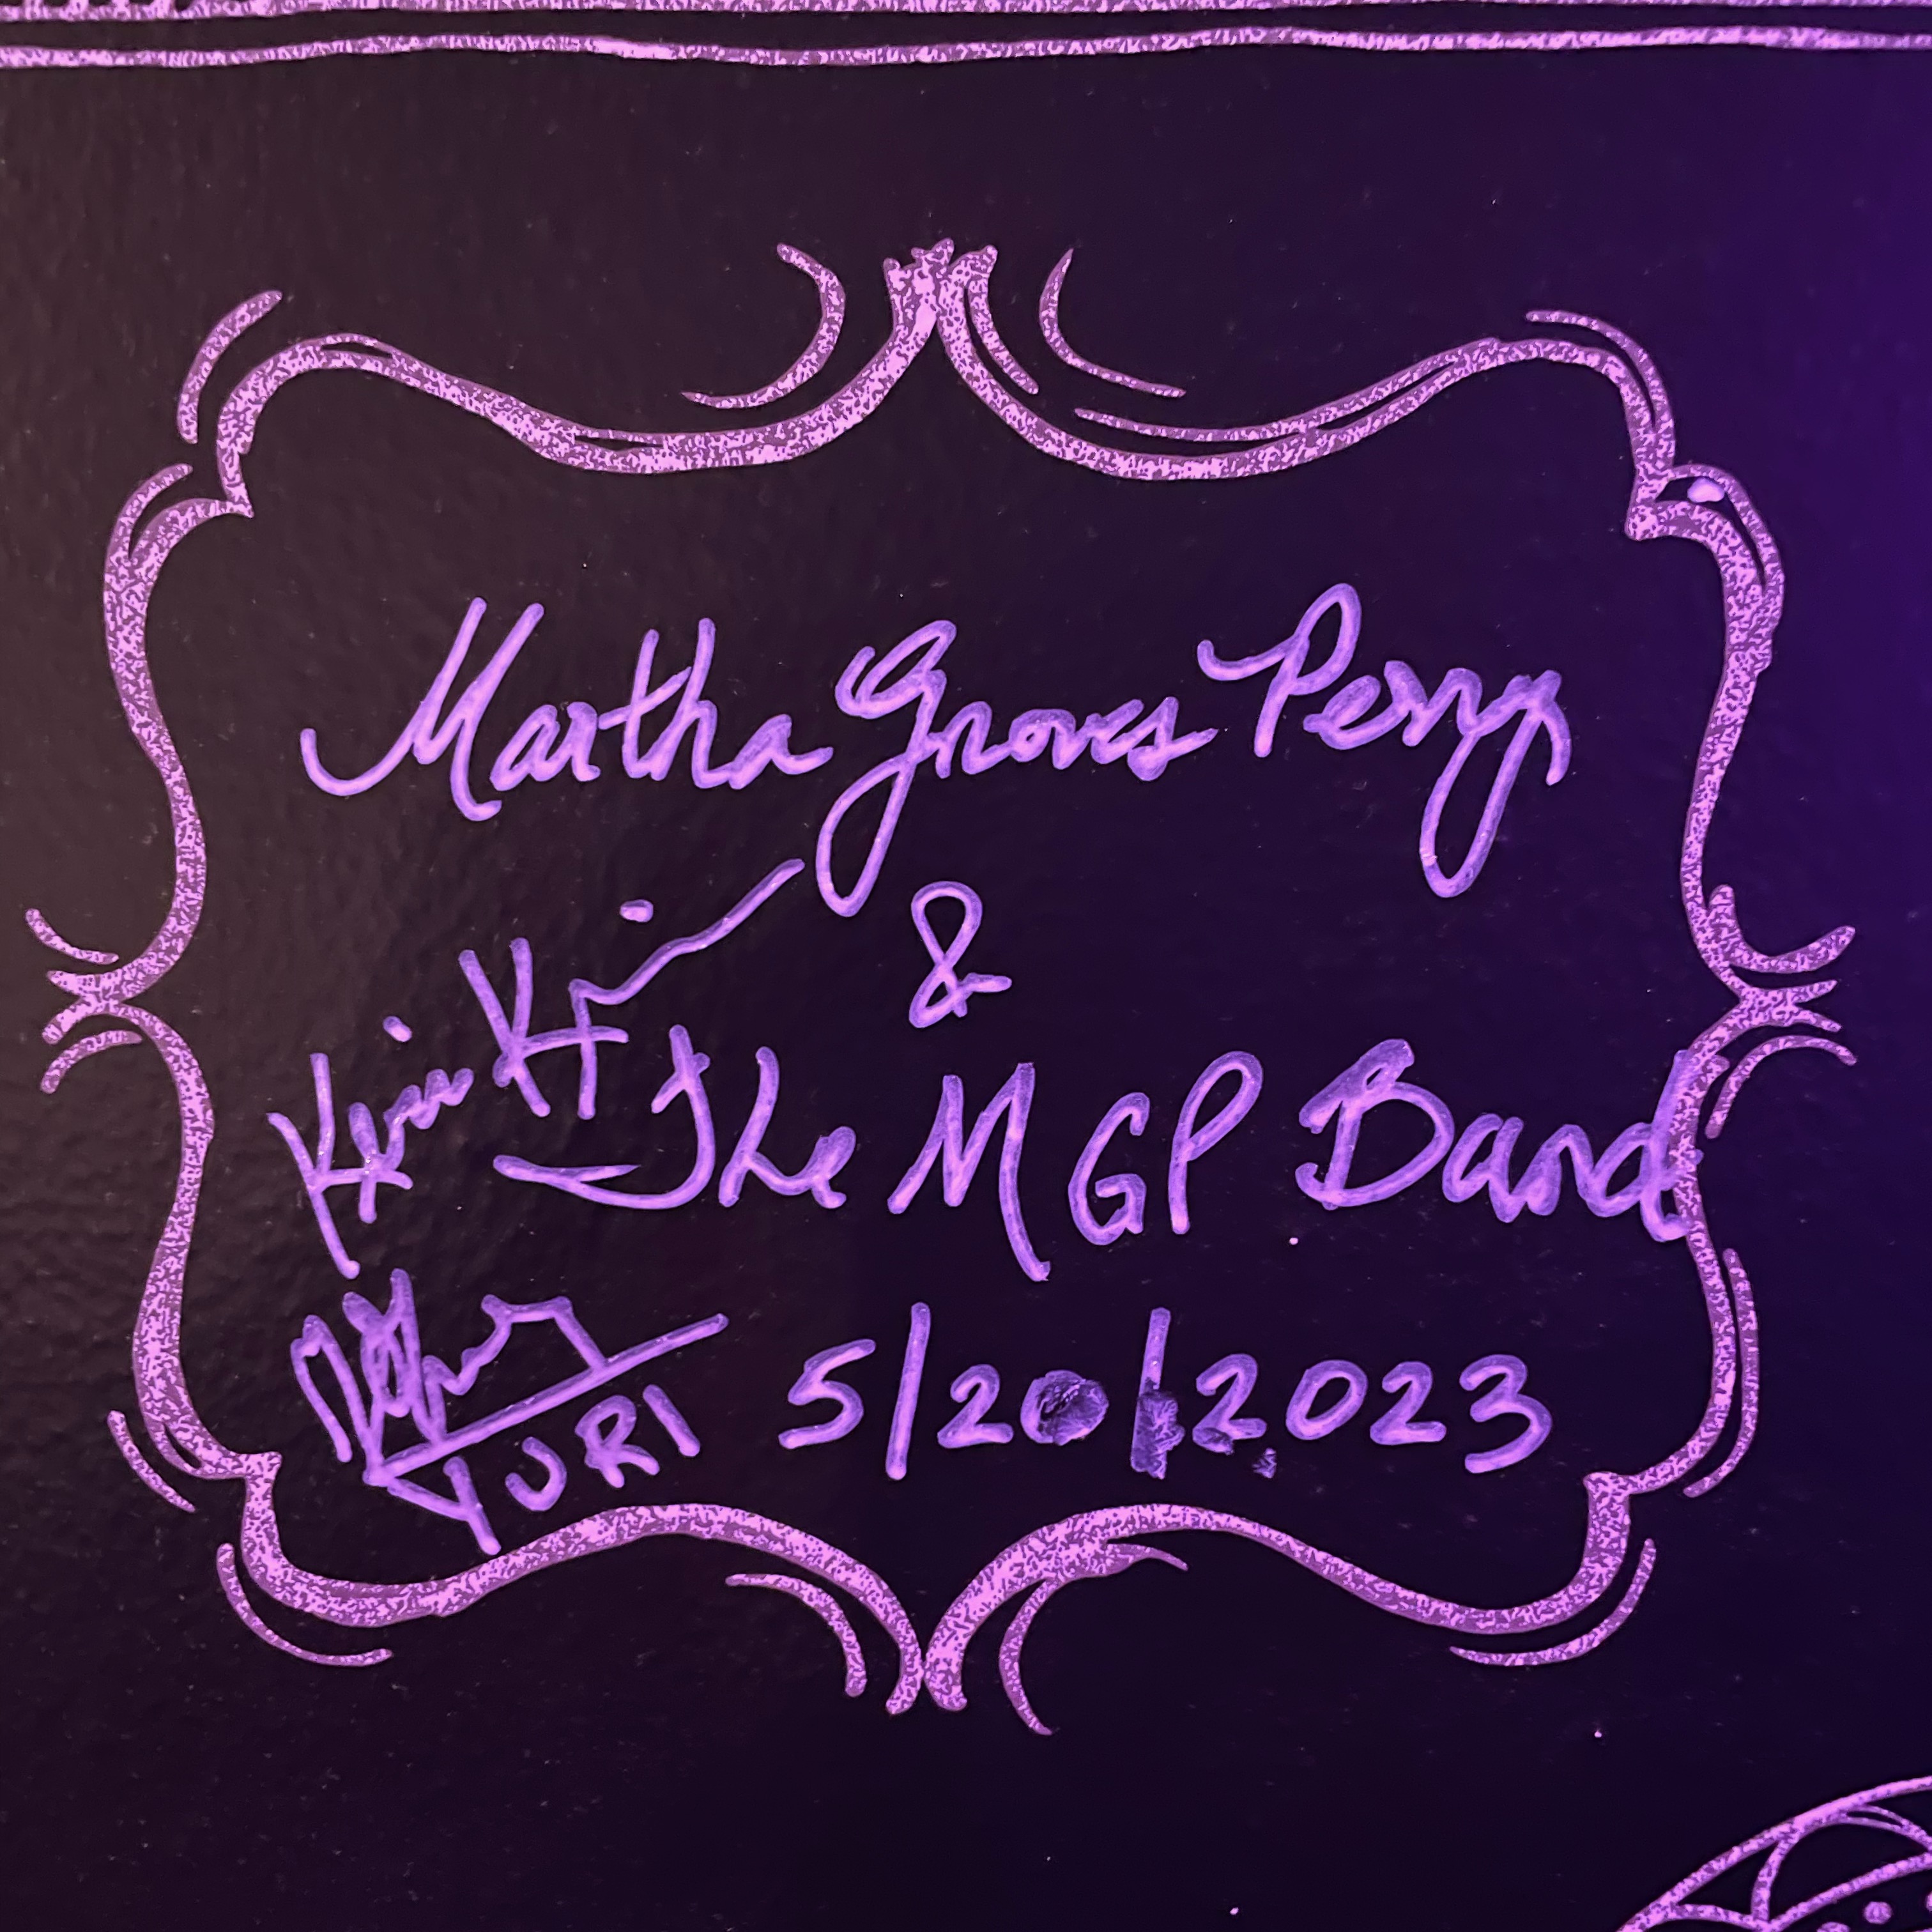 Martha Groves Perry
&
The MGP Band
YURI
5/20/2023